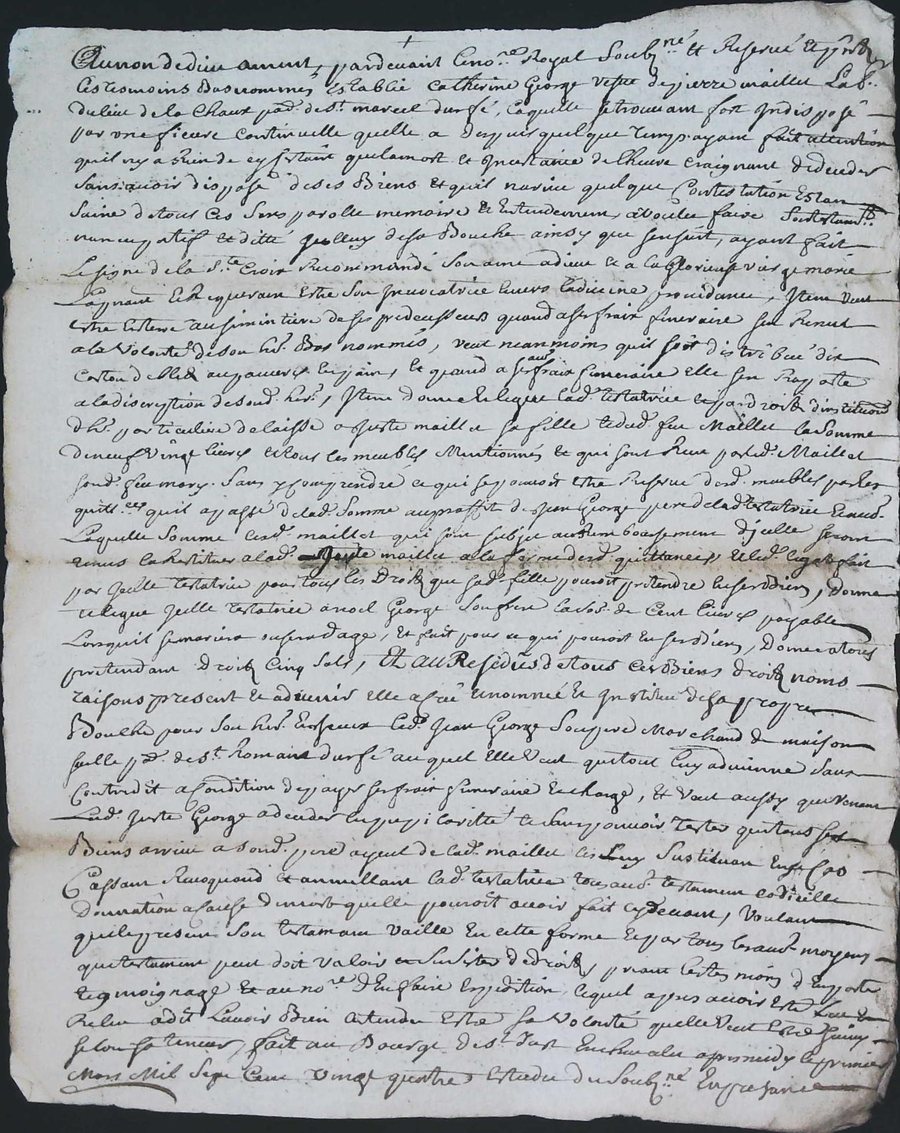 Au nom de dieu amen, par devant le no.re Royal Soub.né et Reservé et présens
les tesmoins Bas nommés, establie Catherine George vefve de pierre maillet Lab.r
du lieu de la Chaut par. de S.t marcel durfé, laquelle se trouvant fort Indisposé
par une fievre Continuelle quelle a despuis quelque temp, ayant fait attention
quil ny a Rien de cy Certain que la mort et Incertaine de lheure craignant de deceder
sans avoir disposé de ses Biens et quil narive quelque Contestation Estan
saine de tous ces sens parolle memoire et Entendement, a voulu faire son testam.t
nuncupatif et ditté de sa Bouche ainsy que sensuit, ayant fait
Le signe de la S.te Croix Recommandé son ame a dieu et a la Glorieuse vierge marie
La priant et Requerant Estre son Invocatrice envers la divine providance, Item veut
estre Enterré au simintiere de ses predecesseurs quand a ses frais funeraire sen Remet
a la volonté de son her. Bas nommés, veut neanmoins quil soit distribué dix
carton de Bled au pauvres En pain, et quand a ses frais funeraire elle sen Raporte
a la discreption de sond. her., Item donne et legue lad. testatrice et par droit dinstitution
dh.r particuliere delaisse a Juste maillet sa fille et dud. feu Maillet la somme
de neuf vingt livres et tous les meubles Mentionnés et qui sont Reçeu par led. Maillet
sond. feu mary, sans y Comprendre ce qui se pouroit estre Reservé desd. meubles par les
quitt.ces quil a passé de lad. somme au proffit de Jean George pere de lad. testatrice
Laquelle somme led. maillet qui sont subjet au Remboursement dicelle seront
tenus la Restituer a lad. Juste maillet a la forme desd. quittances, et led. legat fait
par Icelle testatrice pour tous les droits que sad. fille pouroit pretendre En ses Biens, donne
et legue Icelle testatrice a noel George son frere la so.e de Cent livres payable
Lors quil se mariera ou sera dage, Et fait pour ce qui pouroit En ses Biens, donne a tous
pretendant droits Cinq sols, Et au Residus de tous ces Biens droits noms
raisons present et advenir elle a fait et nommé Et Institue de sa propre
Bouche pour son her. Universel led. Jean George son pere Marchand de maison
par. de S.t Romain durfé auquel elle veut que tout luy advienne sans
Contredit a Condition de payer ses frais funeraire En charge, Et veut aussy que venant
Lad. Juste George a deceder En pupilarité et sans pouvoir tester que tous ses
Biens arrive a sond. pere ayeul de lad. maillet les luy sustituan
Cassant Revoquand et annullant lad. testatrice tou autr. testament codicille
donnation a Cause de mort quelle pouroit avoir fait cy devant, Voulant
que le presen son testamant vaille En cette forme et par tous les autr. moyens
que testament peut doit valoir et subsister de droits, priant les tesmoins dEn porter
tesmoignage Et au no.re dEn faire Expedition, lequel apres avoir Esté Leu Et
Releu a dit lavoir Bien Entendu Estre sa volonté quelle veut Estre suivy
selon sa teneur, fait au Bourge de S.t Just En chevalet apres midy le premier
Mars Mil Sept Cent vingt quatre estude du Soub.né En presence